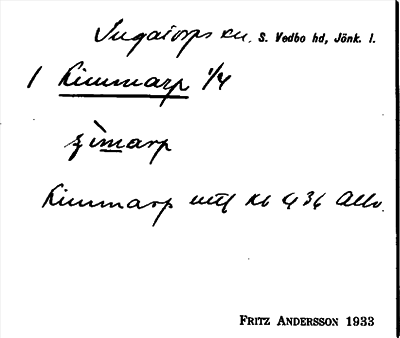 Ingatorps sn. S. Vedbo hd, Jönk. l.
1 Kimmarp 1/4
ʒìmarp
Kimmarp uttl Kb 4 36 Allv.
FRITZ ANDERSSON 1933